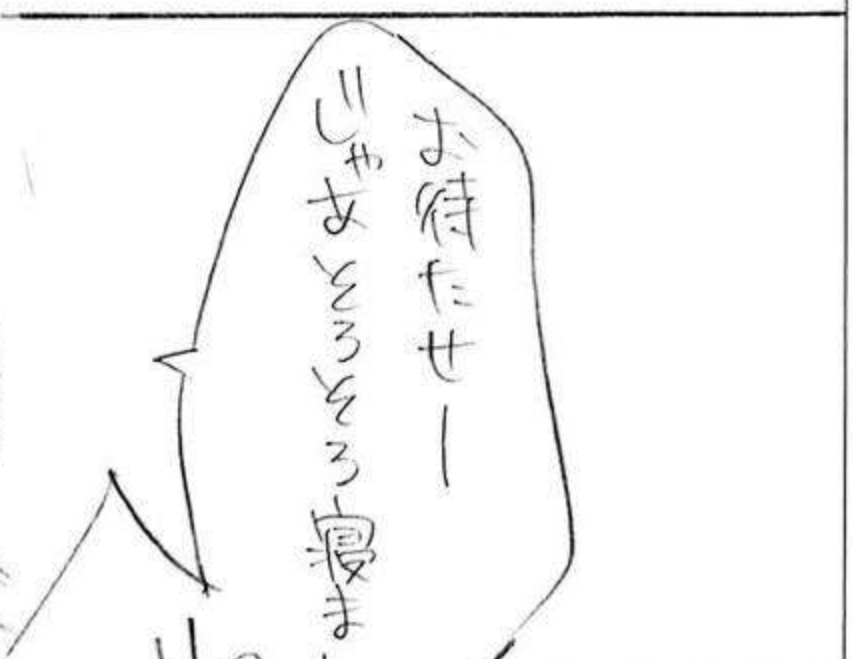 お待たせー
じゃあそろそろ寝ま